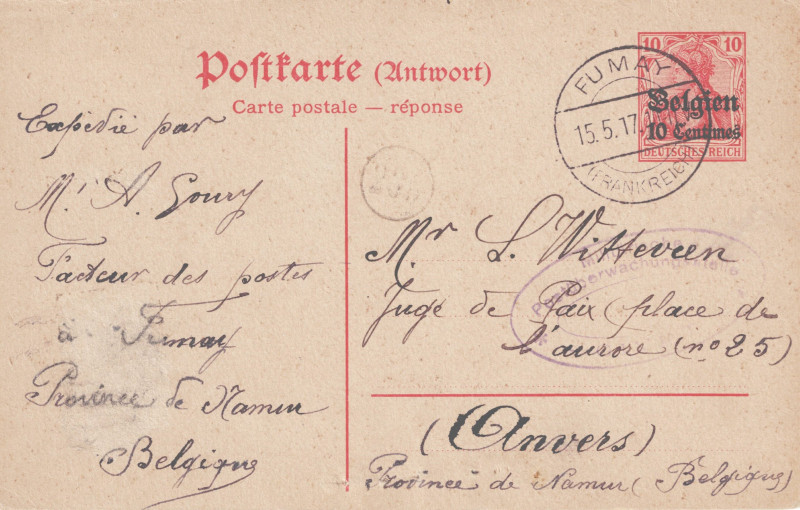 Postkarte (Antwort)
Carte postale — réponse
10 10
Belgien
10 Centimes
DEUTSCHES REICH
FUMAY
15.5.17.
(FRANKREICH)
Expedié par
Mr A. Goury
Facteur des postes
à Fumay
Province de Namur
Belgique
Mr L. Witteveen
Juge de Paix (place de
l'aurore (no 25)
(Anvers)
Province de Namur (Belgique)
Postüberwachungsstelle